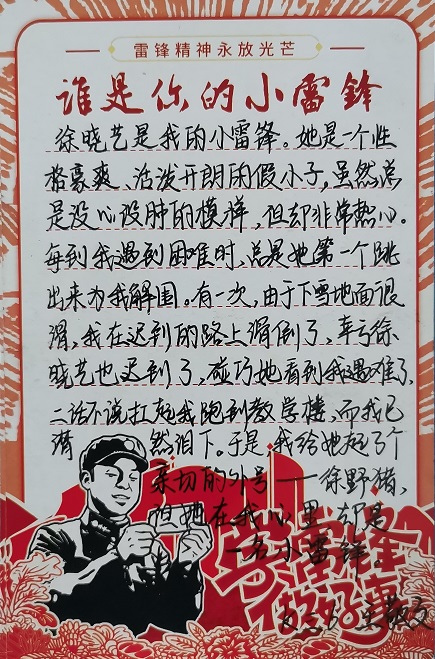 雷锋精神永放光芒
谁是你的小雷鋒
徐晓艺是我的小雷锋。她是一个性
格豪爽、活泼开朗的假小子,虽然总
是没心没肺的模样,但却非常热心。
每到我遇到困难时,总是她第一个跳
出来为我解围。有一次,由于下雪地面很
滑,我在迟到的路上滑倒了,幸亏徐
晓艺也迟到了,碰巧她看到我遇难了,
二话不说扛起我跑到教学楼,而我已
潸然泪下。于是,我给她起了个
亲切的外号——徐野猪,
但她在我心里却是
一名小雷锋。